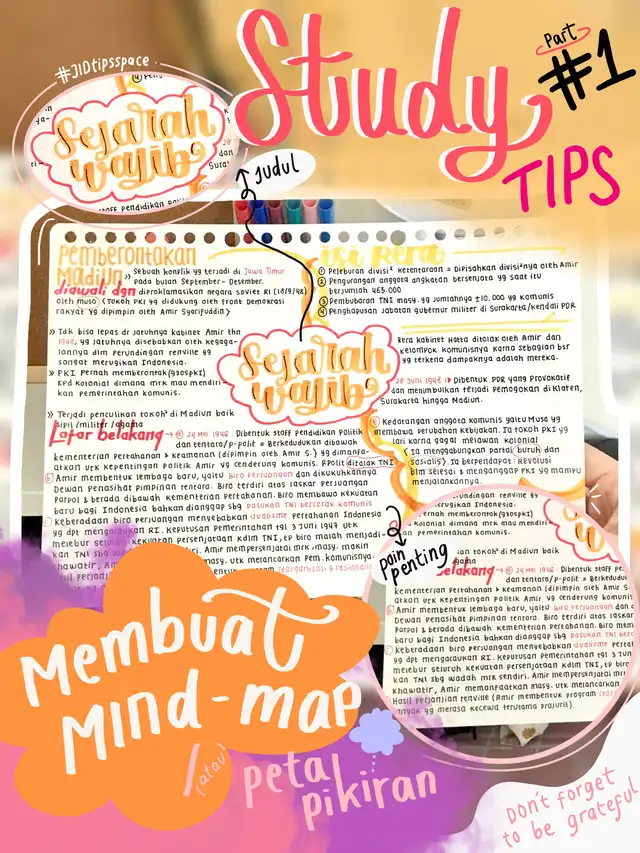 #JIDtipsspace
Study
Part
#1
TIPS
Sejarah
wajib
Judul
Pemberontakan
Madiun
>> Sebuah konflik yg terjadi di Jawa Timur
pada bulan September - Desember.
diawali dgn diproklamasikan negara soviet RI (18/9/48)
oleh muso (Tokoh PKI yg didukung oleh Front Demokrasi
rakyat yg dipimpin oleh Amir Syarifuddin)
>> Tdk bisa lepas dr jatuhnya kabinet Amir thn
1948, yg jatuhnya disebabkan oleh kegaga-
lannya dlm perundingan renville yg
sangat merugikan Indonesia.
>> PKI Pernah memberontak (g30spki)
kpd kolonial dimana mrk mau mendiri-
kan pemerintahan komunis.
>> Terjadi penculikan tokoh² di Madiun baik
sipil/militer/agama
isi Rera
① Peleburan divisi² ketentaraan = Dipisahkan divisi²nya oleh Amir
② Pengurangan anggota angkatan bersenjata yg saat itu
berjumlah 463.000
③ Pembubaran TNI masy. yg jumlahnya ±10.000 yg komunis
④ Penghapusan Jabatan gubernur militer di Surakarta/kendali PDR
Sejarah
wajib
Rera kabinet Hatta ditolak oleh Amir dan
kelompok komunisnya karna sebagian bsr
yg terkena dampaknya adalah mereka.
28 Juni 1948 : Dibentuk PDR yang Provokatif
dan menimbulkan terjadi pemogokan di Klaten,
Surakarta hingga Madiun.
Kedatangan anggota komunis yaitu Muso yg
membawa perubahan kebijakan. Ia tokoh PKI yg
lari karna gagal melawan kolonial
(Ia menggabungkan partai² buruh dan
sosialis). Ia berpendapat : Revolusi
blm selesai & menganggap PKI yg mampu
menjalankannya.
Latar belakang → ⓐ 24 Mei 1948 : Dibentuk staff pendidikan Politik
dan tentara/p-polit = Berkedudukan dibawah
kementerian Pertahanan & keamanan (dipimpin oleh Amir S.) yg dimanfa-
atkan utk kepentingan Politik Amir yg cenderung komunis. PPolit ditolak TNI
ⓑ Amir membentuk lembaga baru, yaitu Biro Perjuangan dan dikukuhkannya
Dewan Penasihat Pimpinan tentara. Biro terdiri atas laskar perjuangan
Parpol & berada dibawah kementerian Pertahanan. Biro membawa kekuatan
baru bagi Indonesia bahkan dianggap sbg pasukan TNI bercorak komunis
ⓒ Keberadaan biro perjuangan menyebabkan dualisme pertahanan Indonesia
yg dpt mengacaukan RI. Keputusan Pemerintahan tgl 3 Juni 1947 utk
melebur seluruh kekuatan persenjataan kdlm TNI, tp biro malah menjadi-
kan TNI sbg wadah mrk sendiri. Amir mempersenjatai mrk
poin
penting
Membuat
Mind-map
/(atau)
peta
pikiran
Don't forget
to be grateful